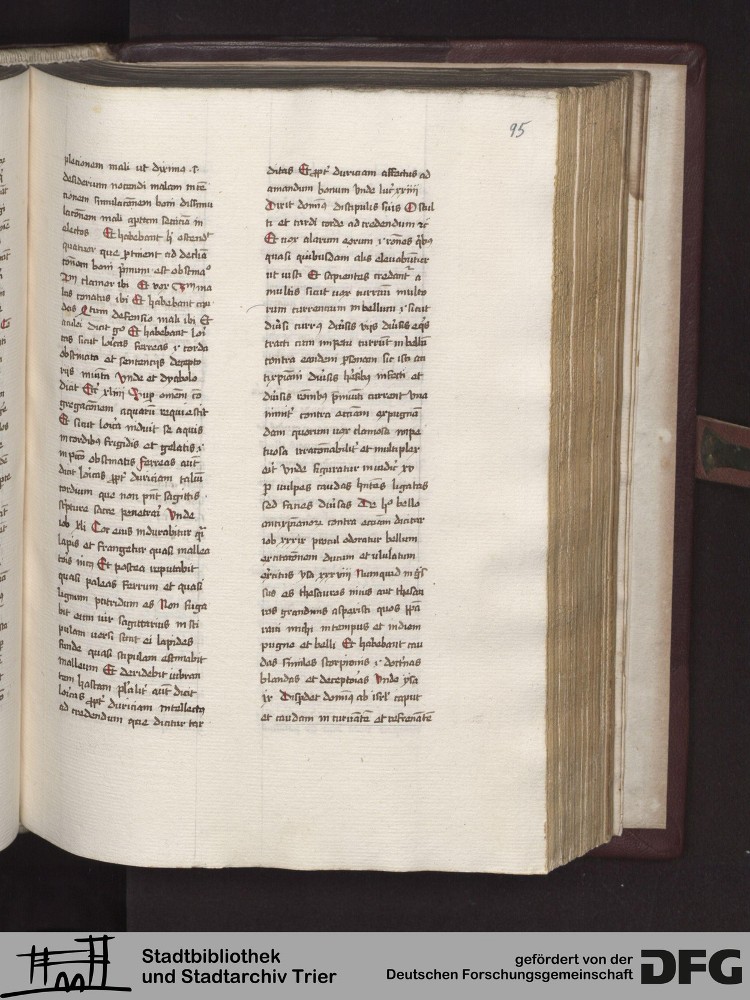 95
pletionem mali ut diximus .s.
desiderium nocendi malam inte
tionem simulacōnem boni dissimu
lacōnem mali
electos Et habebant
quatuor que ptinent ad
boni pͥmum est
clamor ibi Et vox
ibi Et habebant
defensio mali ibi Et
dicit Et habebant lori
cas sicut loricas ferreas .i. corda
obstinata et sententijs
vnde et dyabolo
dicit xliiii
gregacōnem aquarū requiescit
Et sicut lorica induit se aquis
in cordibꝫ frigidis et gelatis .i.
obstinatis ferreas aut
dicit loricas ꝓpt̓ duriciam talium
cordium que non pn̄t sagittis
scpture sacre penetrari Vnde
iob xli Cor eius indurabitur
lapis et stringetur quasi malleatoris
incus Et postea reputabit
quasi paleas ferrum et quasi
lignum putridum es Non fuga
bit eum vir sagittarius in sti
pulam versi sunt ei lapides
funde quasi stipulam estimabit
malleum Et deridebit vibran
tem hastam aūt dicit
loricas ꝓpt̓ duriciam intellectꝰ
ad credendum que dicitur tar
ditas Et ꝓpt̓ duriciam affectus ad
amandum bonum Vnde luc̄ xxiiii
Dixit domīꝰ discipulis suis O stul
ti et tardi corde ad credendum
Et vox alarum earum .i. rōnes qͥbꝫ
quasi quibusdam alis eleuabuntur
ut iusti Et sapientes credant̓ a
multis sicut vox curruum multo
rum currentium in bellum .i. sicut
diūsi currꝰ diūsis vijs diūsis eqͥs
tracti cum impetu currūt in bellū
contra eandem psonam sic isti an
tixpīani diūsis hesibꝫ infecti et
diūsis currunt vna
nimit̓ contra eccīam expugnā
dam quorum vox clamosa impe
tuosa irracionabilit̓ et multiplex
erit Vnde figuratur iudic̄ xv
p vulpes caudas hn̄tes ligatas
sed facies diūsas De hͦ bello
antixpīanorum contra eccīam dicitur
iob xxxix procul odoratur bellum
exhortacōnem ducum et ululatum
exercitus xxxviii Numquid ingͥs
sus es thesauros niuis aut thesau
ros grandinis aspexisti quos ppa
raui in tempus et in diem
pugne et belli Et habebant cau
das similes scorpionū .i. doctͥnas
blandas et deceptorias Vnde ysa
ix Disꝑdet domīꝰ ab isrl̓ caput
et caudam incuruātē et refrenātē
Stadtbibliothek
und Stadtarchiv Trier
gefördert von der
Deutschen Forschungsgemeinschaft
DFG